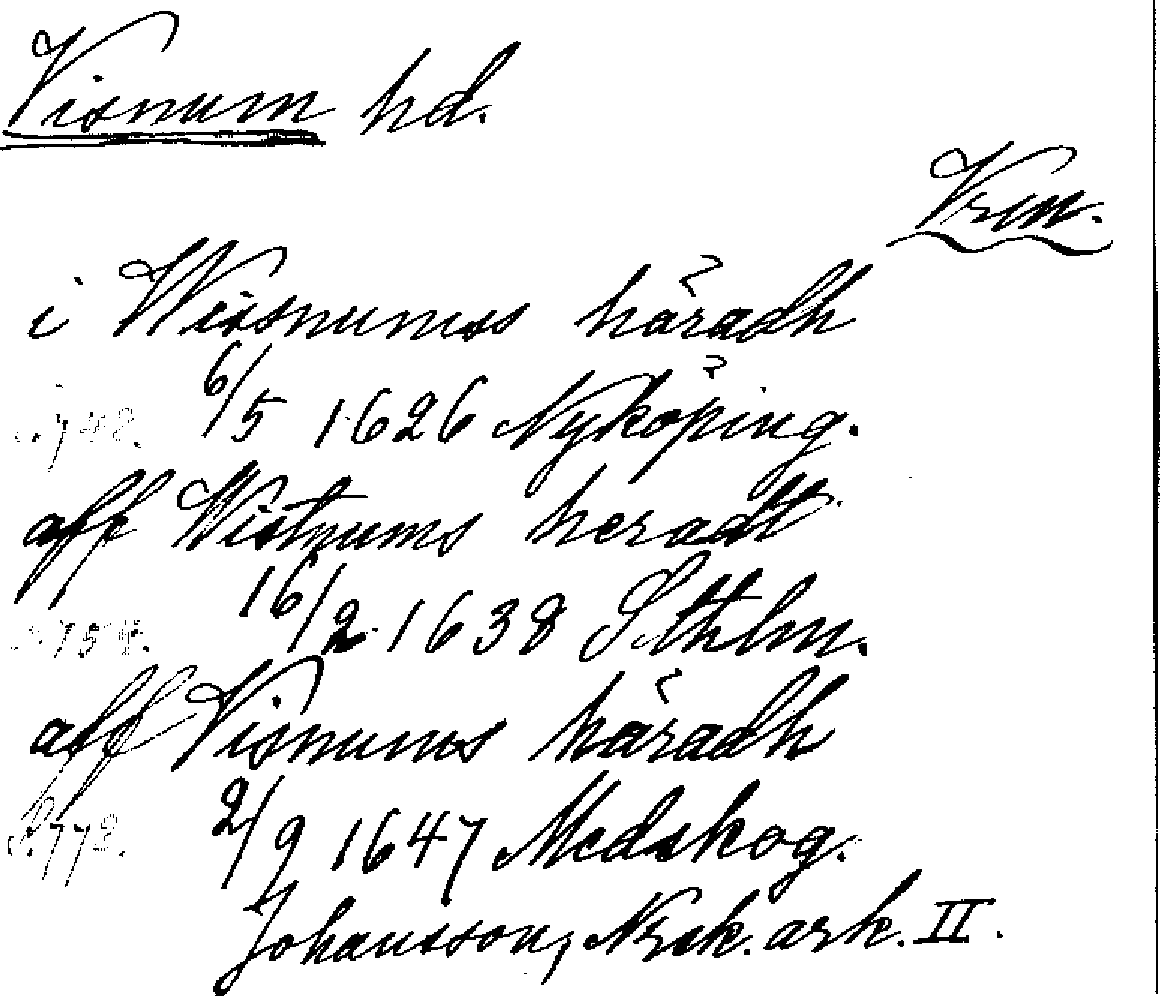 Visnum hd.
Vrm.
i Wissnumss häradh
s. 748. 6/5 1626 Nyköping.
aff Wistnums heradt
s. 754. 16/2 1638 Sthlm.
aff Visnums häradh
S. 772. 2/9 1647 Medskog.
Johansson, Nrsk. ark. II.